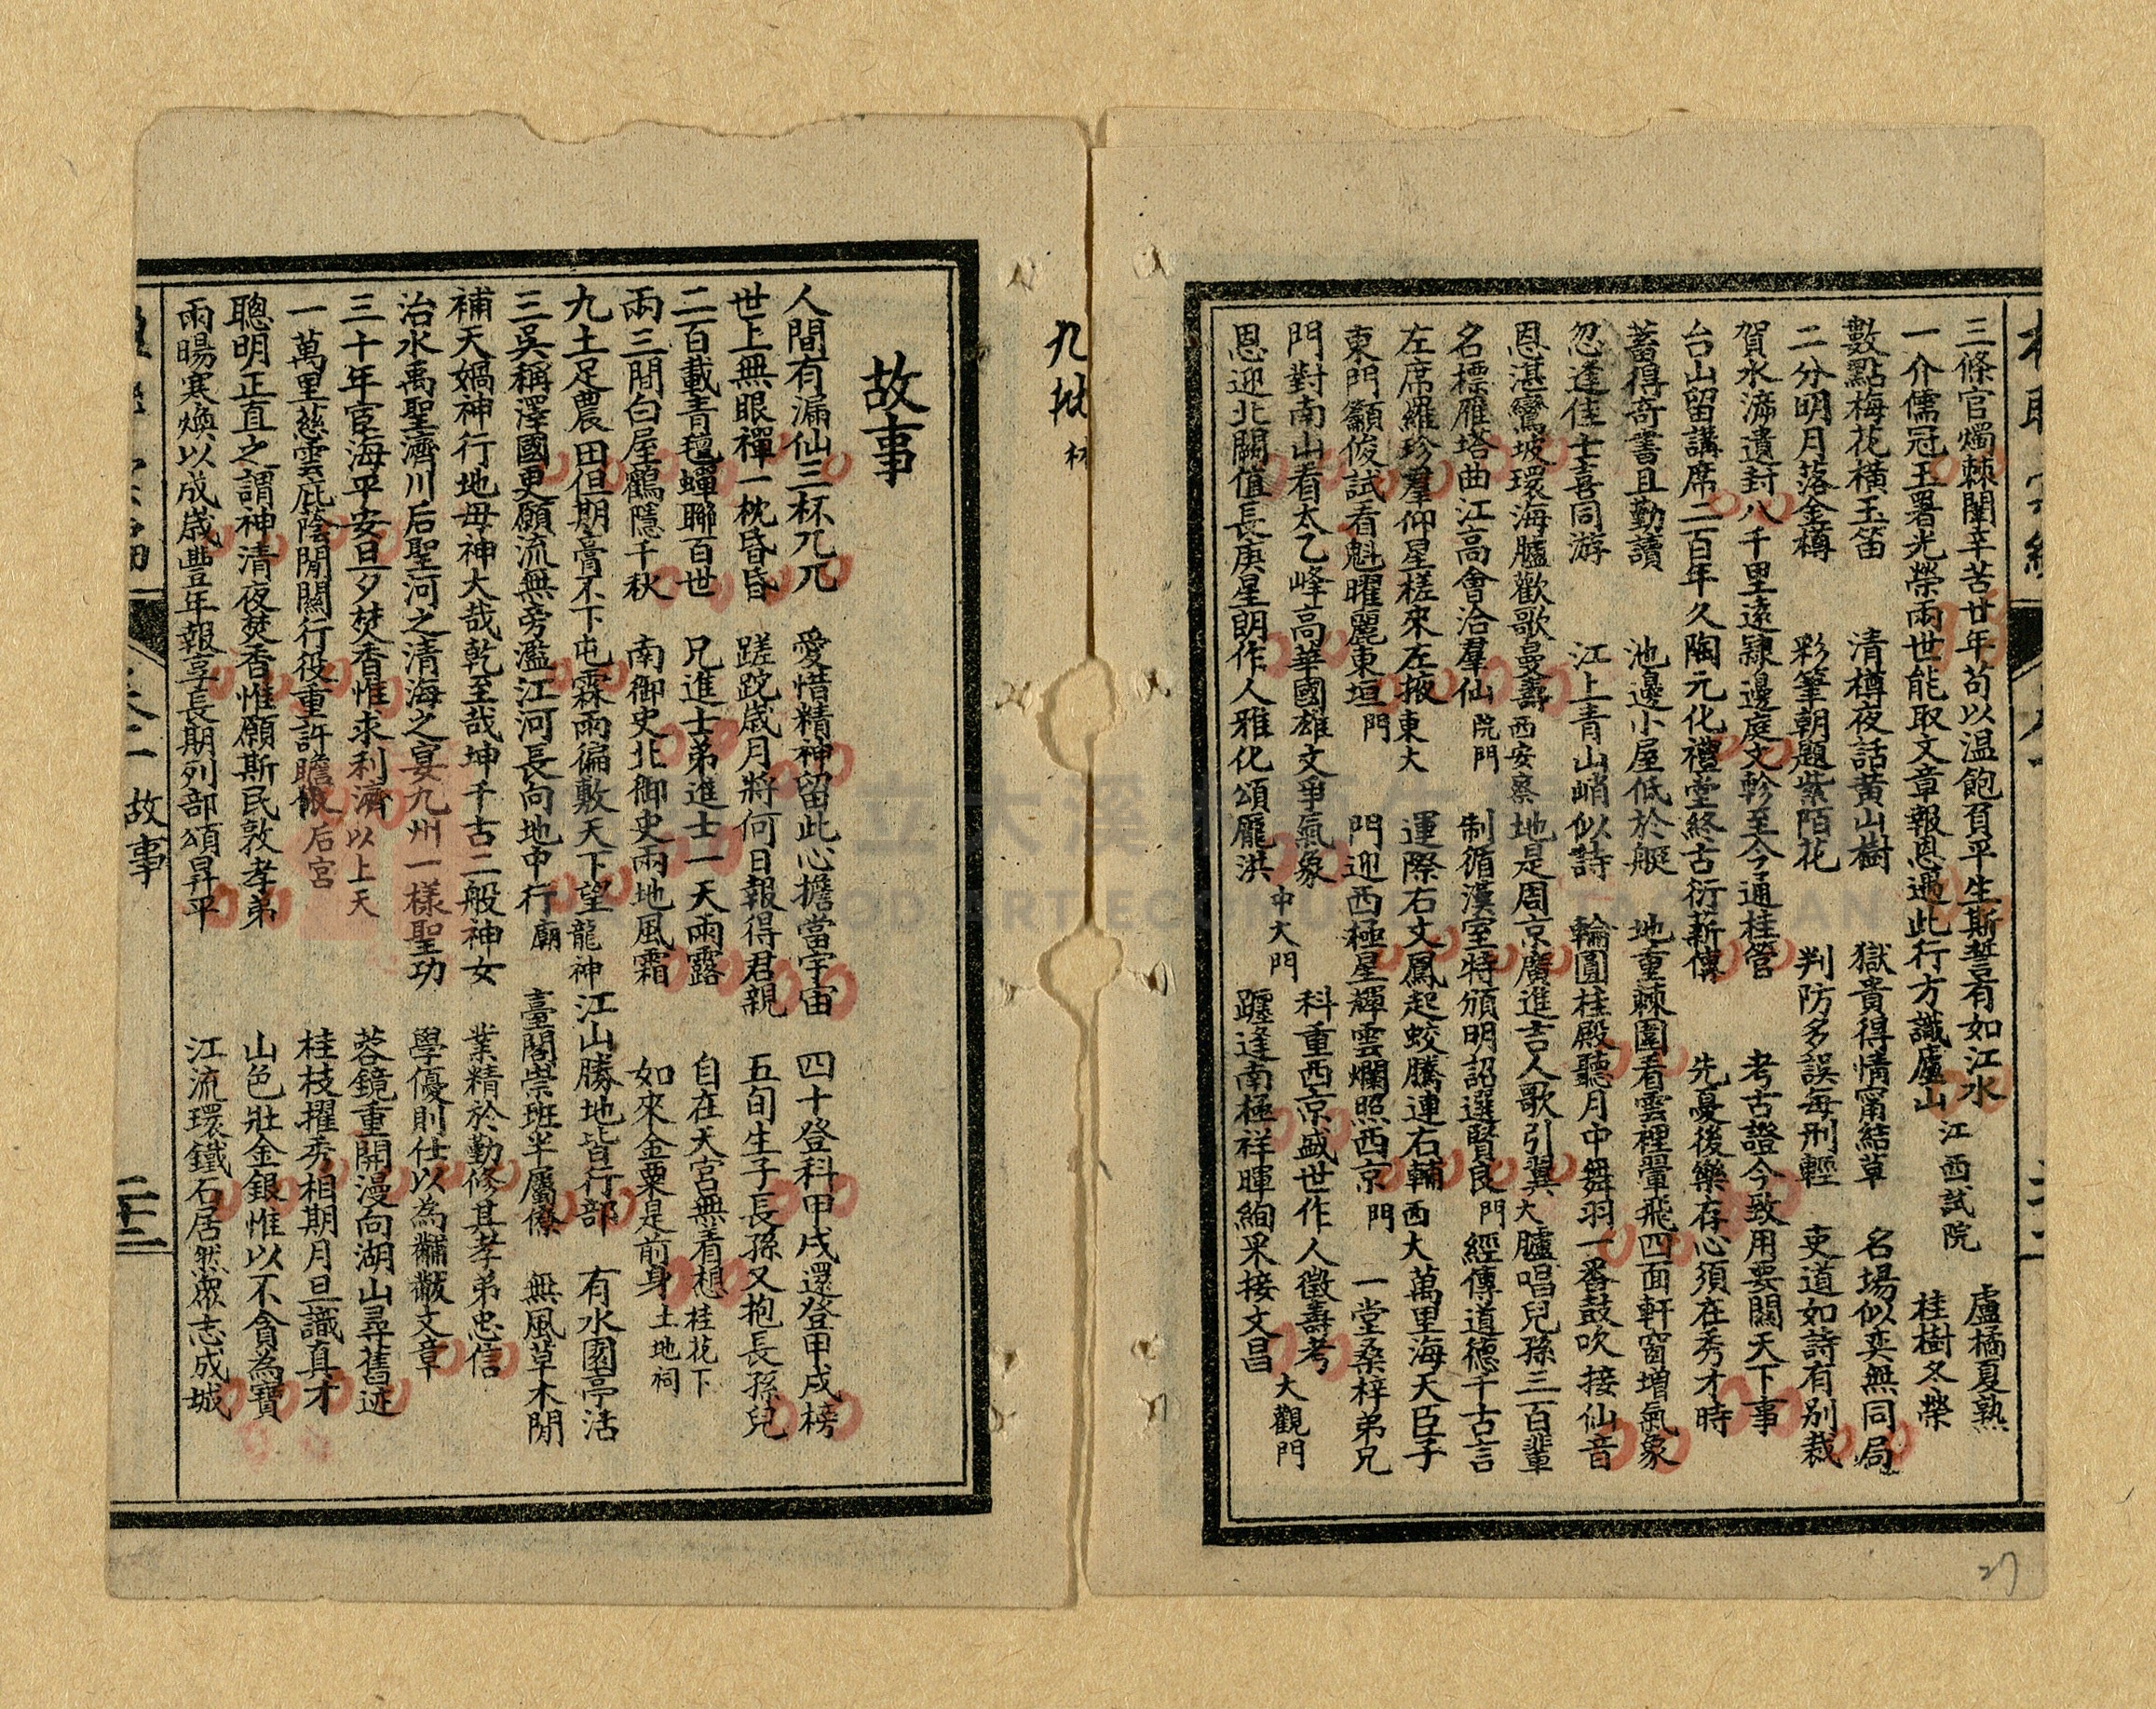 三條官燭棘闈辛苦廿年茍以温飽負平生斯誓有如江水
盧橘夏熟
一介儒冠玉署光榮兩世能取文章報恩遇此行方識廬山 江西試院
桂樹冬榮
數點梅花橫玉笛 清樽夜話黃山樹 獄貴得情甯結草 名場似奕無同局
二分明月落金樽 彩筆朝題紫陌花 判防多誤每刑輕 吏道如詩有别裁
賀水滯遺封八千里遠隸邊庭文軫至今通桂管 考古證今致用要關天下事
台山留講席二百年久陶元化禮堂終古衍薪傳 先憂後樂存心須在秀才時
蓄得奇書且勤讀 池邊小屋低於艇 地重棘圍看雲裡翬飛四面軒窗增氣象
忽逢佳士喜同游 江上青山峭似詩 輪圓桂殿聽月中舞羽一番鼓吹接仙音
恩湛鸞坡環海臚歡歌曼壽 西安察 地是周京廣進吉人歌引翼 大 臚唱兒孫三百輩
名標雁塔曲江高會洽羣仙 院門 制循漢室特頒明詔選賢良 門 經傳道德千古言
左席羅珍羣仰星槎來左掖 東大 運際右文鳳起蛟騰連右輔 西大 萬里海天臣子
東門籲俊試看魁曜麗東垣 門 門迎西極星輝雲爛照西京 門 一堂桑梓弟兄
門對南山看太乙峰高華國雄文爭氣象 中大門 科重西京盛世作人徵壽考
恩迎北闕值長庚星朗作人雅化頌龎洪 躔逢南極祥暉絢采接文昌 大觀門
27
九批
故事
人間有漏仙三杯兀兀 愛惜精神留此心擔當宇宙 四十登科甲戌還登甲戌榜
世上無眼禪一枕昏昏 蹉跎歲月將何日報得君親 五旬生子長孫又抱長孫兒
二百載青氊蟬聯百世 兄進士弟進士一天雨露 自在天宮無着想 桂花下
兩三間白屋鶴隱千秋 南御史北御史兩地風霜 如來金粟是前身 土地祠
九土足農田但期膏不下屯霖雨徧敷天下望 龍神 江山勝地皆行部 有水園亭活
三吳稱澤國更願流無旁濫江河長向地中行 廟 臺閣崇班半屬僚 無風草木閒
補天媧神行地母神大哉乾至哉坤千古二般神女 業精於勤修其孝弟忠信
治水禹聖濟川后聖河之清海之宴九州一樣聖功 學優則仕以為黼黻文章
三十年宦海平安旦夕焚香惟求利濟 以上天 蓉鏡重開漫向湖山尋舊迹
一萬里慈雲庇蔭閒關行役重許瞻依 后宮 桂枝擢秀相期月旦識真才
聰明正直之謂神清夜焚香惟願斯民敦孝弟 山色壯金銀惟以不貪為寶
雨暘寒煥以成歲豊年報享長期列部頌昇平 江流環鐵石居然眾志成城
卷二 故事
二十三